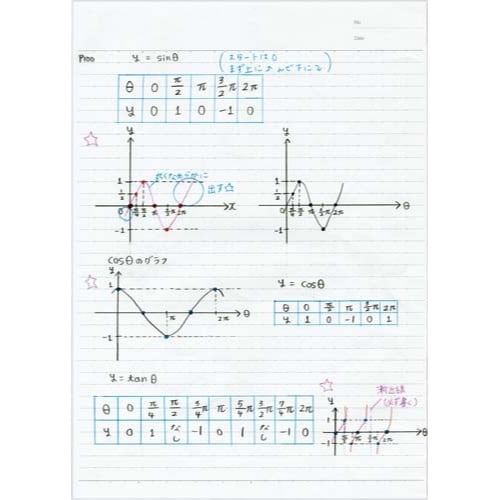 No.
Date
P100 y = sinθ (スタートは0
まず上にいって下にで)
θ 0 π/2 π 3/2π 2π
y 0 1 0 -1 0
☆ y
1
1/2
0 π/6 π/2 π 3/2π 2π x
-1
出す☆
y
1
1/2
π/6 π/2 π 3/2π 2π θ
-1
cosθのグラフ
☆ y
1
π 2π θ
-1
y = cosθ
θ 0 π/2 π 3/2π 2π
y 1 0 -1 0 1
y = tanθ
θ 0 π/4 π/2 3/4π π 5/4π 3/2π 7/4π 2π
y 0 1 なし -1 0 1 なし -1 0
☆ 漸近線
(必ず書く)
y
1
π/2 π 3/2π 2π θ
-1